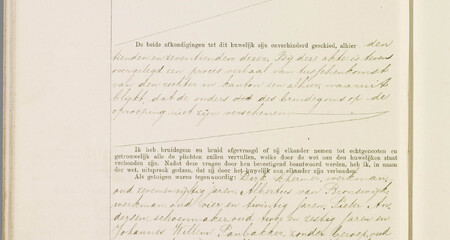 De beide afkondigingen tot dit huwelijk zijn onverhinderd geschied, alhier den
tienden en zeventienden dezer. Bij deze akte is tevens
overgelegd een proces verbaal van tusschenkomst
van den rechter in kanton alhier, waaruit
blijkt, dat de ouders des bruidegoms op de
oproeping niet zijn verschenen
Ik heb bruidegom en bruid afgevraagd of zij elkander nemen tot echtgenooten en
getrouwelijk alle de plichten zullen vervullen, welke door de wet aan den huwelijken staat
verbonden zijn. Nadat deze vragen door hen bevestigend beantwoord werden, heb ik, in naam
der wet, uitspraak gedaan, dat zij door het huwelijk aan elkander zijn verbonden.
Als getuigen waren tegenwoordig: Derk werkman,
oud zevenenvijftig jaren, Albertus van Bronswijk,
werkman oud vier en twintig jaren, Pieter An-
dersen, schoenmaker oud twee en zestig jaren en
Johannes Willem Panbakker, zonder beroep, oud